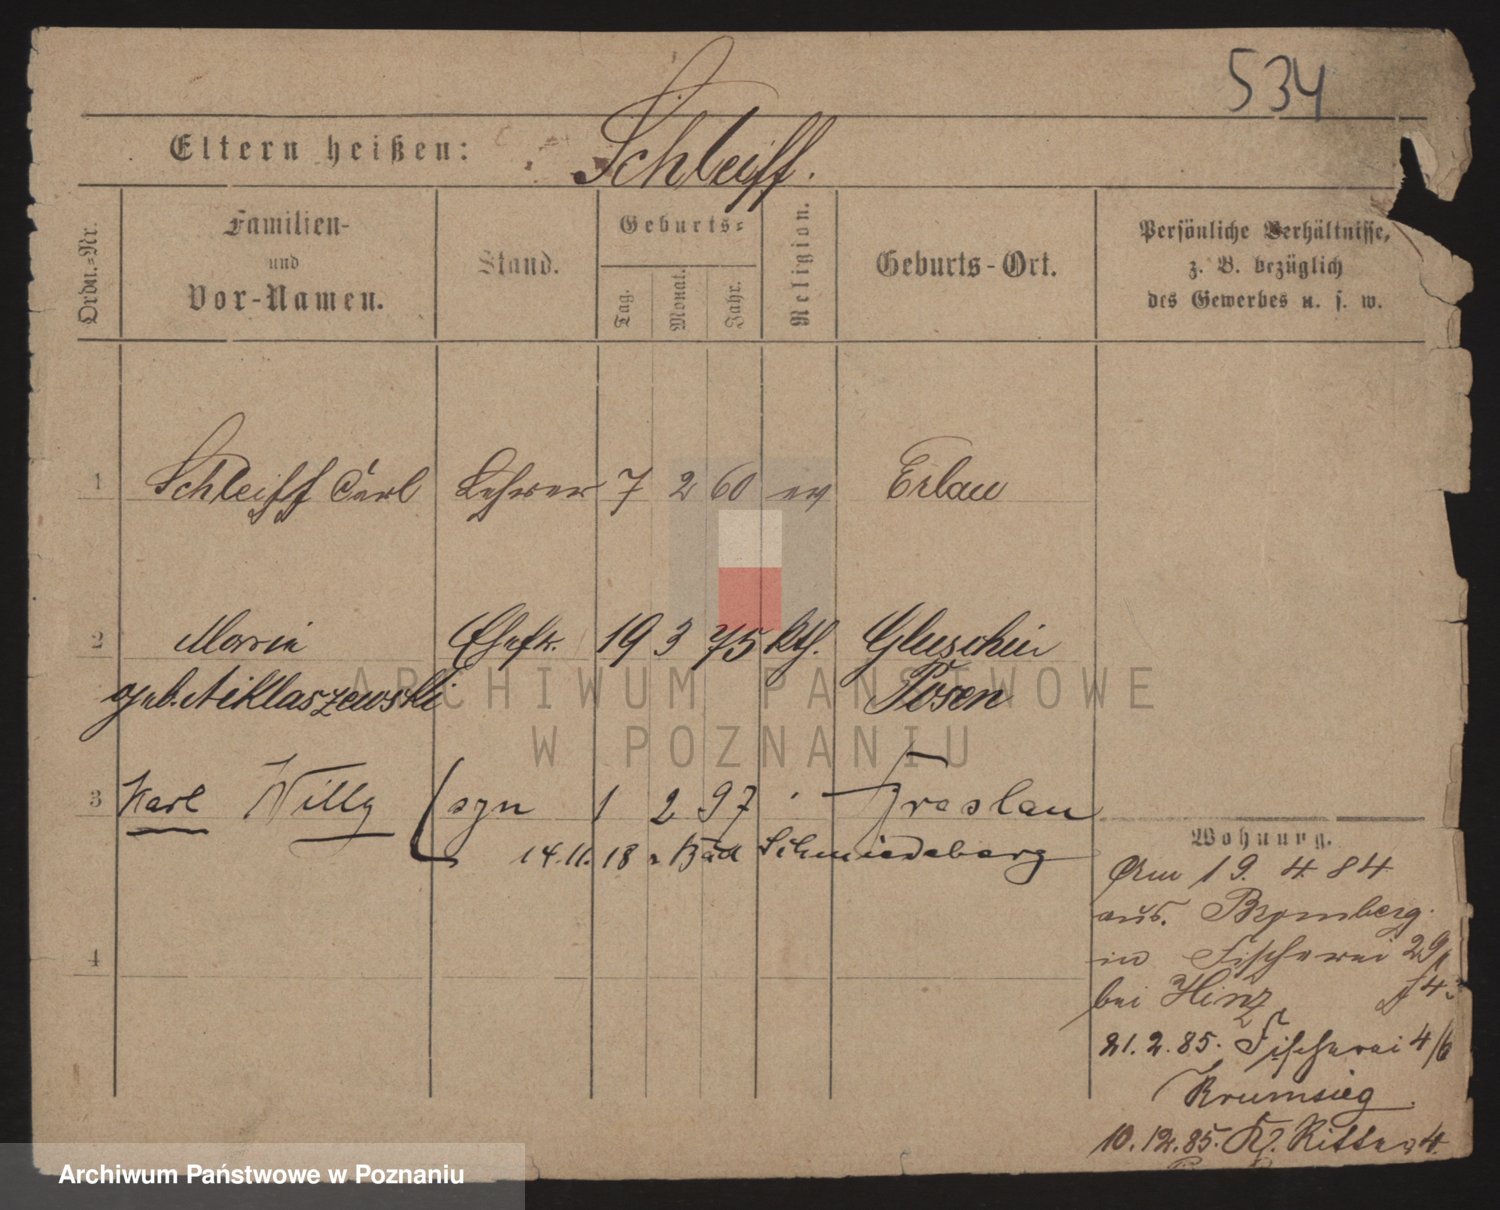 534
Eltern heißen: Schleiff.
Ordn.=Nr.
Familien-
und
Vor-Namen.
Stand.
Geburts=
Tag.
Monat.
Jahr.
Religion.
Geburts-Ort.
Persönliche Verhältnisse,
z. B. bezüglich
des Gewerbes u. s. w.
1 Schleiff Carl Lehrer 7 2 60 ev Erlau
2 Marie Ehefr. 19 3 75 kth. Gluschin
geb. Niklaszewski Posen
3 Karl Willy syn 1 2 97 Breslau
14.11.18 n Bad Schmiedeberg
4
Wohnung.
Am 19. 4 84
aus. Bromberg.
in Fischerei 29
bei Hinz
21.2.85. Fischerei 4/6
Krumsieg
10.12.85. Kl. Ritter 4.
ARCHIWUM PAŃSTWOWE
W POZNANIU
Archiwum Państwowe w Poznaniu